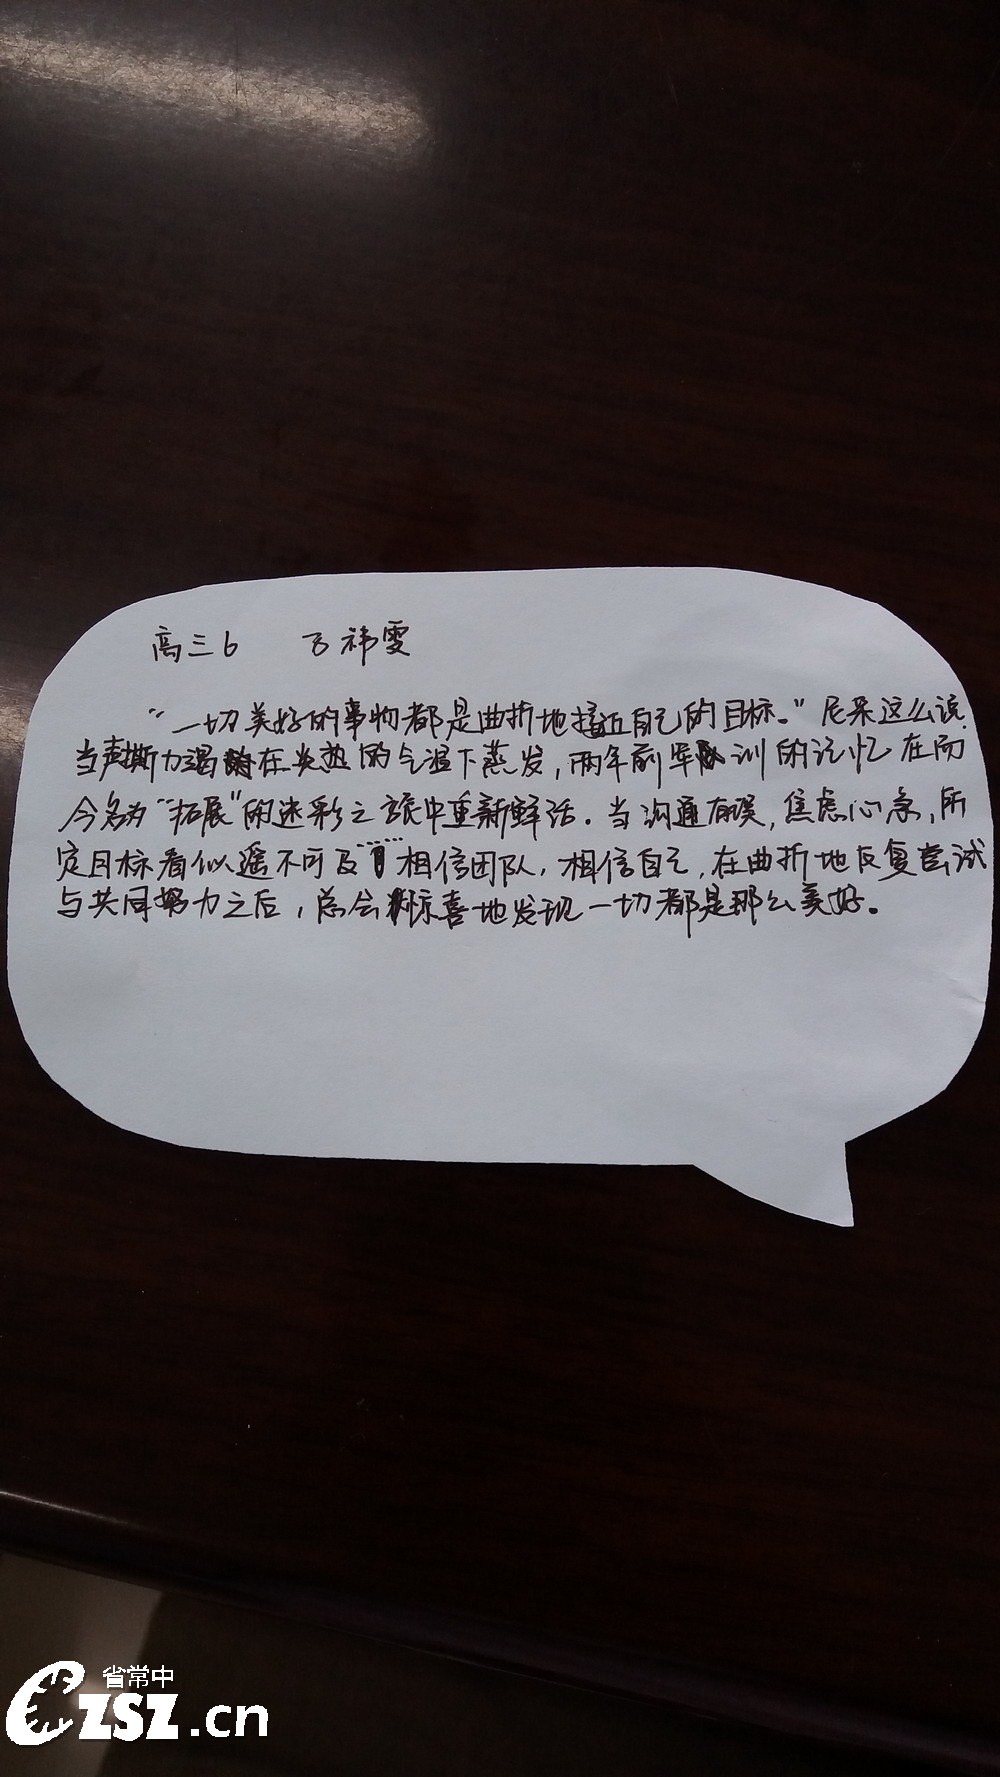 高三6 祎雯
“一切美好的事物都是曲折地接近自己的目标。”尼采这么说.
当声嘶力竭在炎热的气温下蒸发,两年前军训的记忆在而
今名为“拓展”的迷彩之旅中重新鲜活。当沟通有误,焦虑心急,所
定目标看似遥不可及……相信团队,相信自己,在曲折地反复尝试
与共同努力之后,总会惊喜地发现一切都是那么美好。
省常中
CZSZ.cn